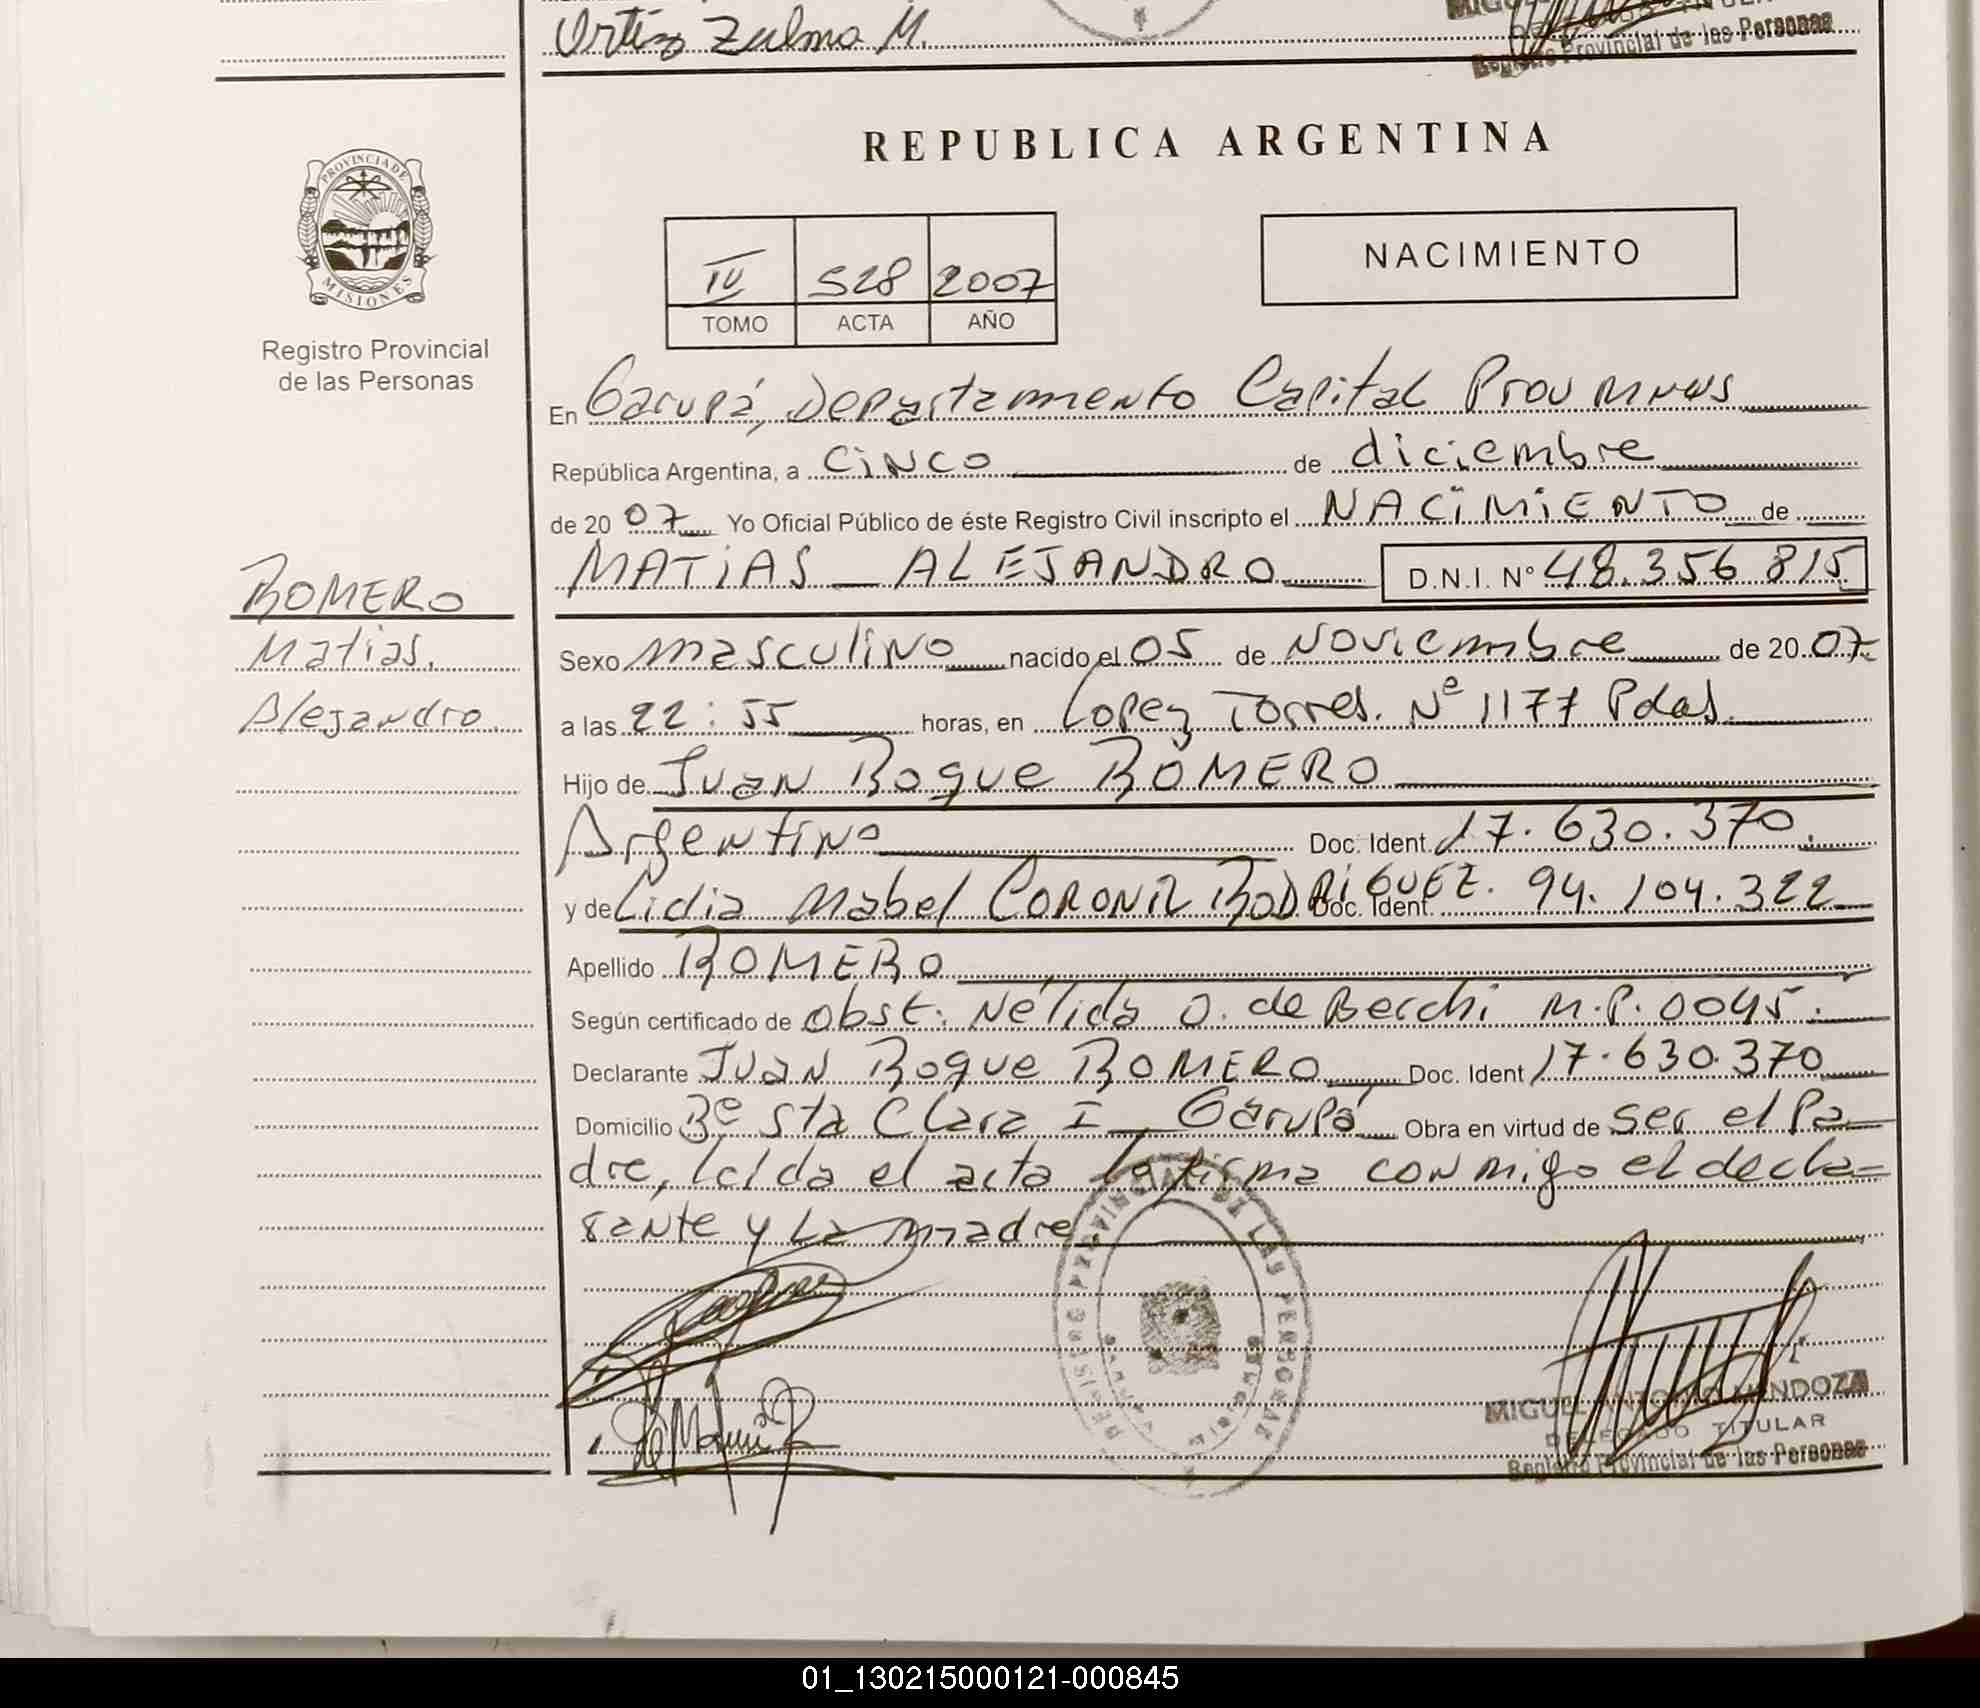 Ortiz Zulma M.
Registro Provincial de las Personas
PROVINCIA DE
MISIONES
Registro Provincial
de las Personas
REPUBLICA ARGENTINA
IV 528 2007
TOMO ACTA AÑO
NACIMIENTO
En Garupá, Departamento Capital Prov Mnes
República Argentina, a cinco de diciembre
de 2007 Yo Oficial Público de éste Registro Civil inscripto el NACIMIENTO de
MATIAS ALEJANDRO D.N.I. Nº 48.356 815
ROMERO
Matias
Alejandro
Sexo masculino nacido el 05 de Noviembre de 2007
a las 22:55 horas, en Lopez Torres. Nº 1177 Pdas.
Hijo de Juan Roque ROMERO
Argentino Doc. Ident. 17.630.370.
y de Lidia Mabel CORONIL RODRIGUEZ. Doc. Ident. 94.104.322
Apellido ROMERO
Según certificado de obst. Nélida O. de Berchi M.P. 0045.
Declarante Juan Roque ROMERO Doc. Ident 17.630.370
Domicilio Bº Sta Clara I - Garupá Obra en virtud de ser el Pa-
dre, leida el acta la firma conmigo el decla=
rante y la madre.
REGISTRO PROVINCIAL DE LAS PERSONAS
MIGUEL ANTONIO MENDOZA
DELEGADO TITULAR
Registro Provincial de las Personas
01_130215000121-000845